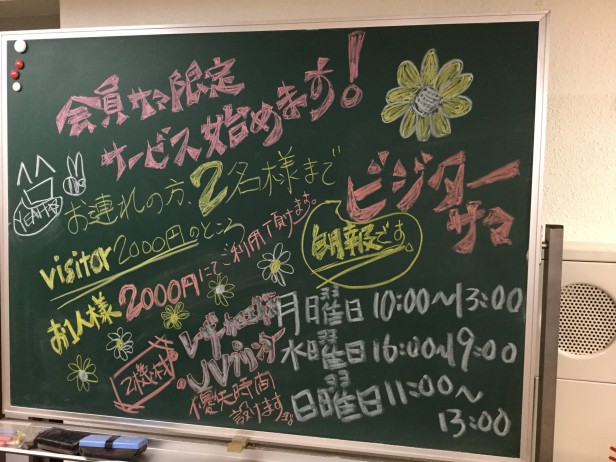 会員サマ限定
サービス始めます!
お連れの方、2名様まで
ビジター
サマ
visitor 2000円のところ
朗報です。
お1人様 2000円にてご利用頂けます。
レーザーカッター
UVプリンター
優先時間
設けます。
月曜日 10:00〜13:00
水曜日 16:00〜19:00
日曜日 11:00〜
13:00